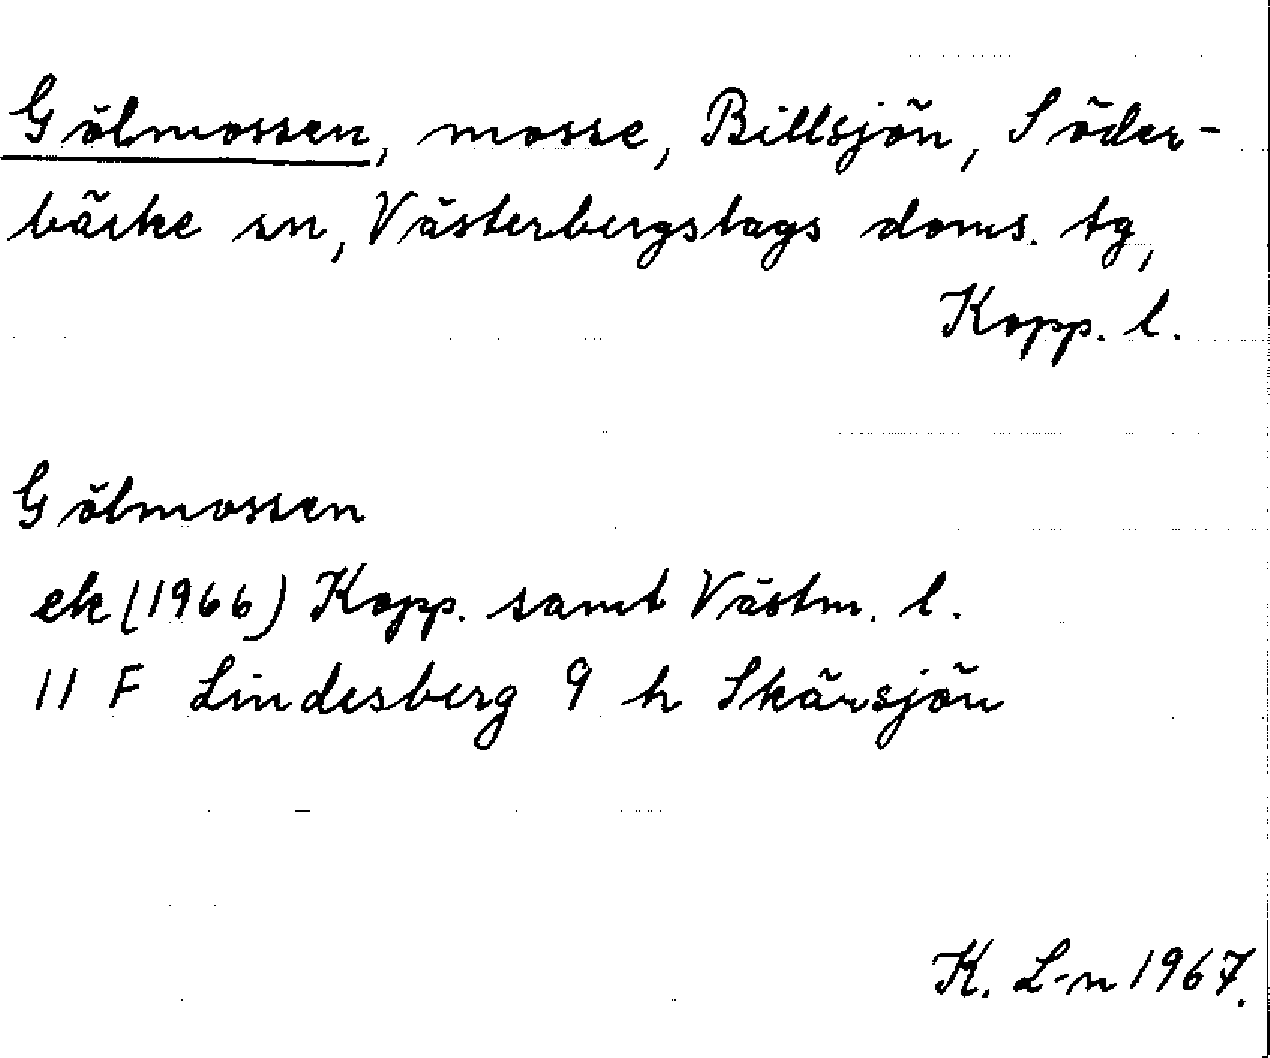 Gölmossen, mosse, Billsjön, Söder-
bärke sn, Västerbergslags doms. tg,
Kopp. l.
Gölmossen
ek (1966) Kopp. samt Västm. l.
11 F Lindesberg 9 h Skärsjön
K. L-n 1967.